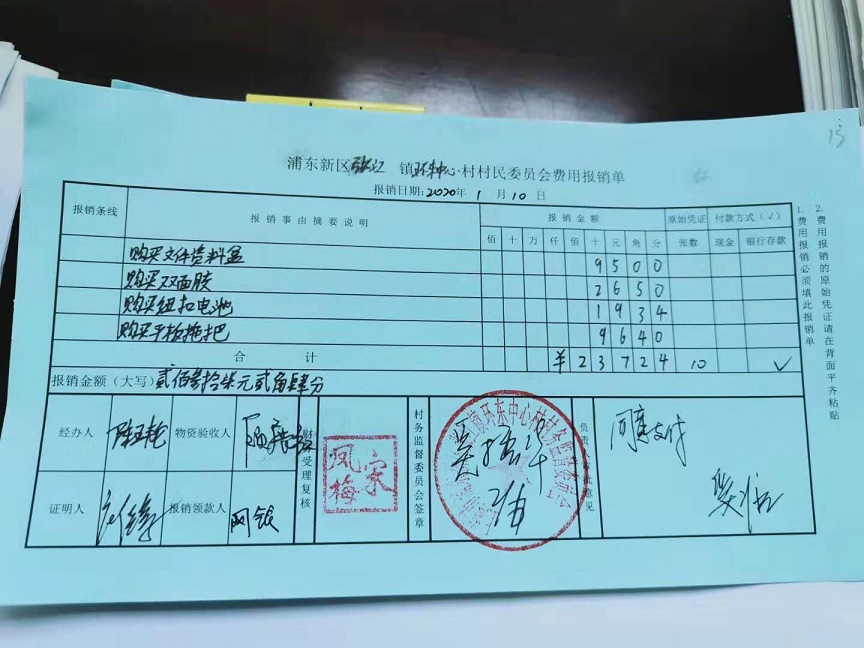 15
浦东新区张江 镇环东中心村村民委员会费用报销单
报销日期:2020年 1 月 10 日
报销条线 报销事由摘要说明 报销金额 原始凭证 付款方式(√)
佰 十 万 仟 佰 十 元 角 分 张数 现金 银行存款
购买文件资料盒 9 5 0 0
购买双面胶 2 6 5 0
购买纽扣电池 1 9 3 4
购买平板拖把 9 6 4 0
合 计 ¥ 2 3 7 2 4 10 √
报销金额(大写)贰佰叁拾柒元贰角肆分
经办人 物资验收人
证明人 报销领款人 网银
财 受理复核
凤梅 宋
村务监督委员会签章
镇环东中心村村务监督委员会
负责人审批意见
同意支付
1、费用报销必须填此报销单
2、费用报销的原始凭证请在背面平齐粘贴